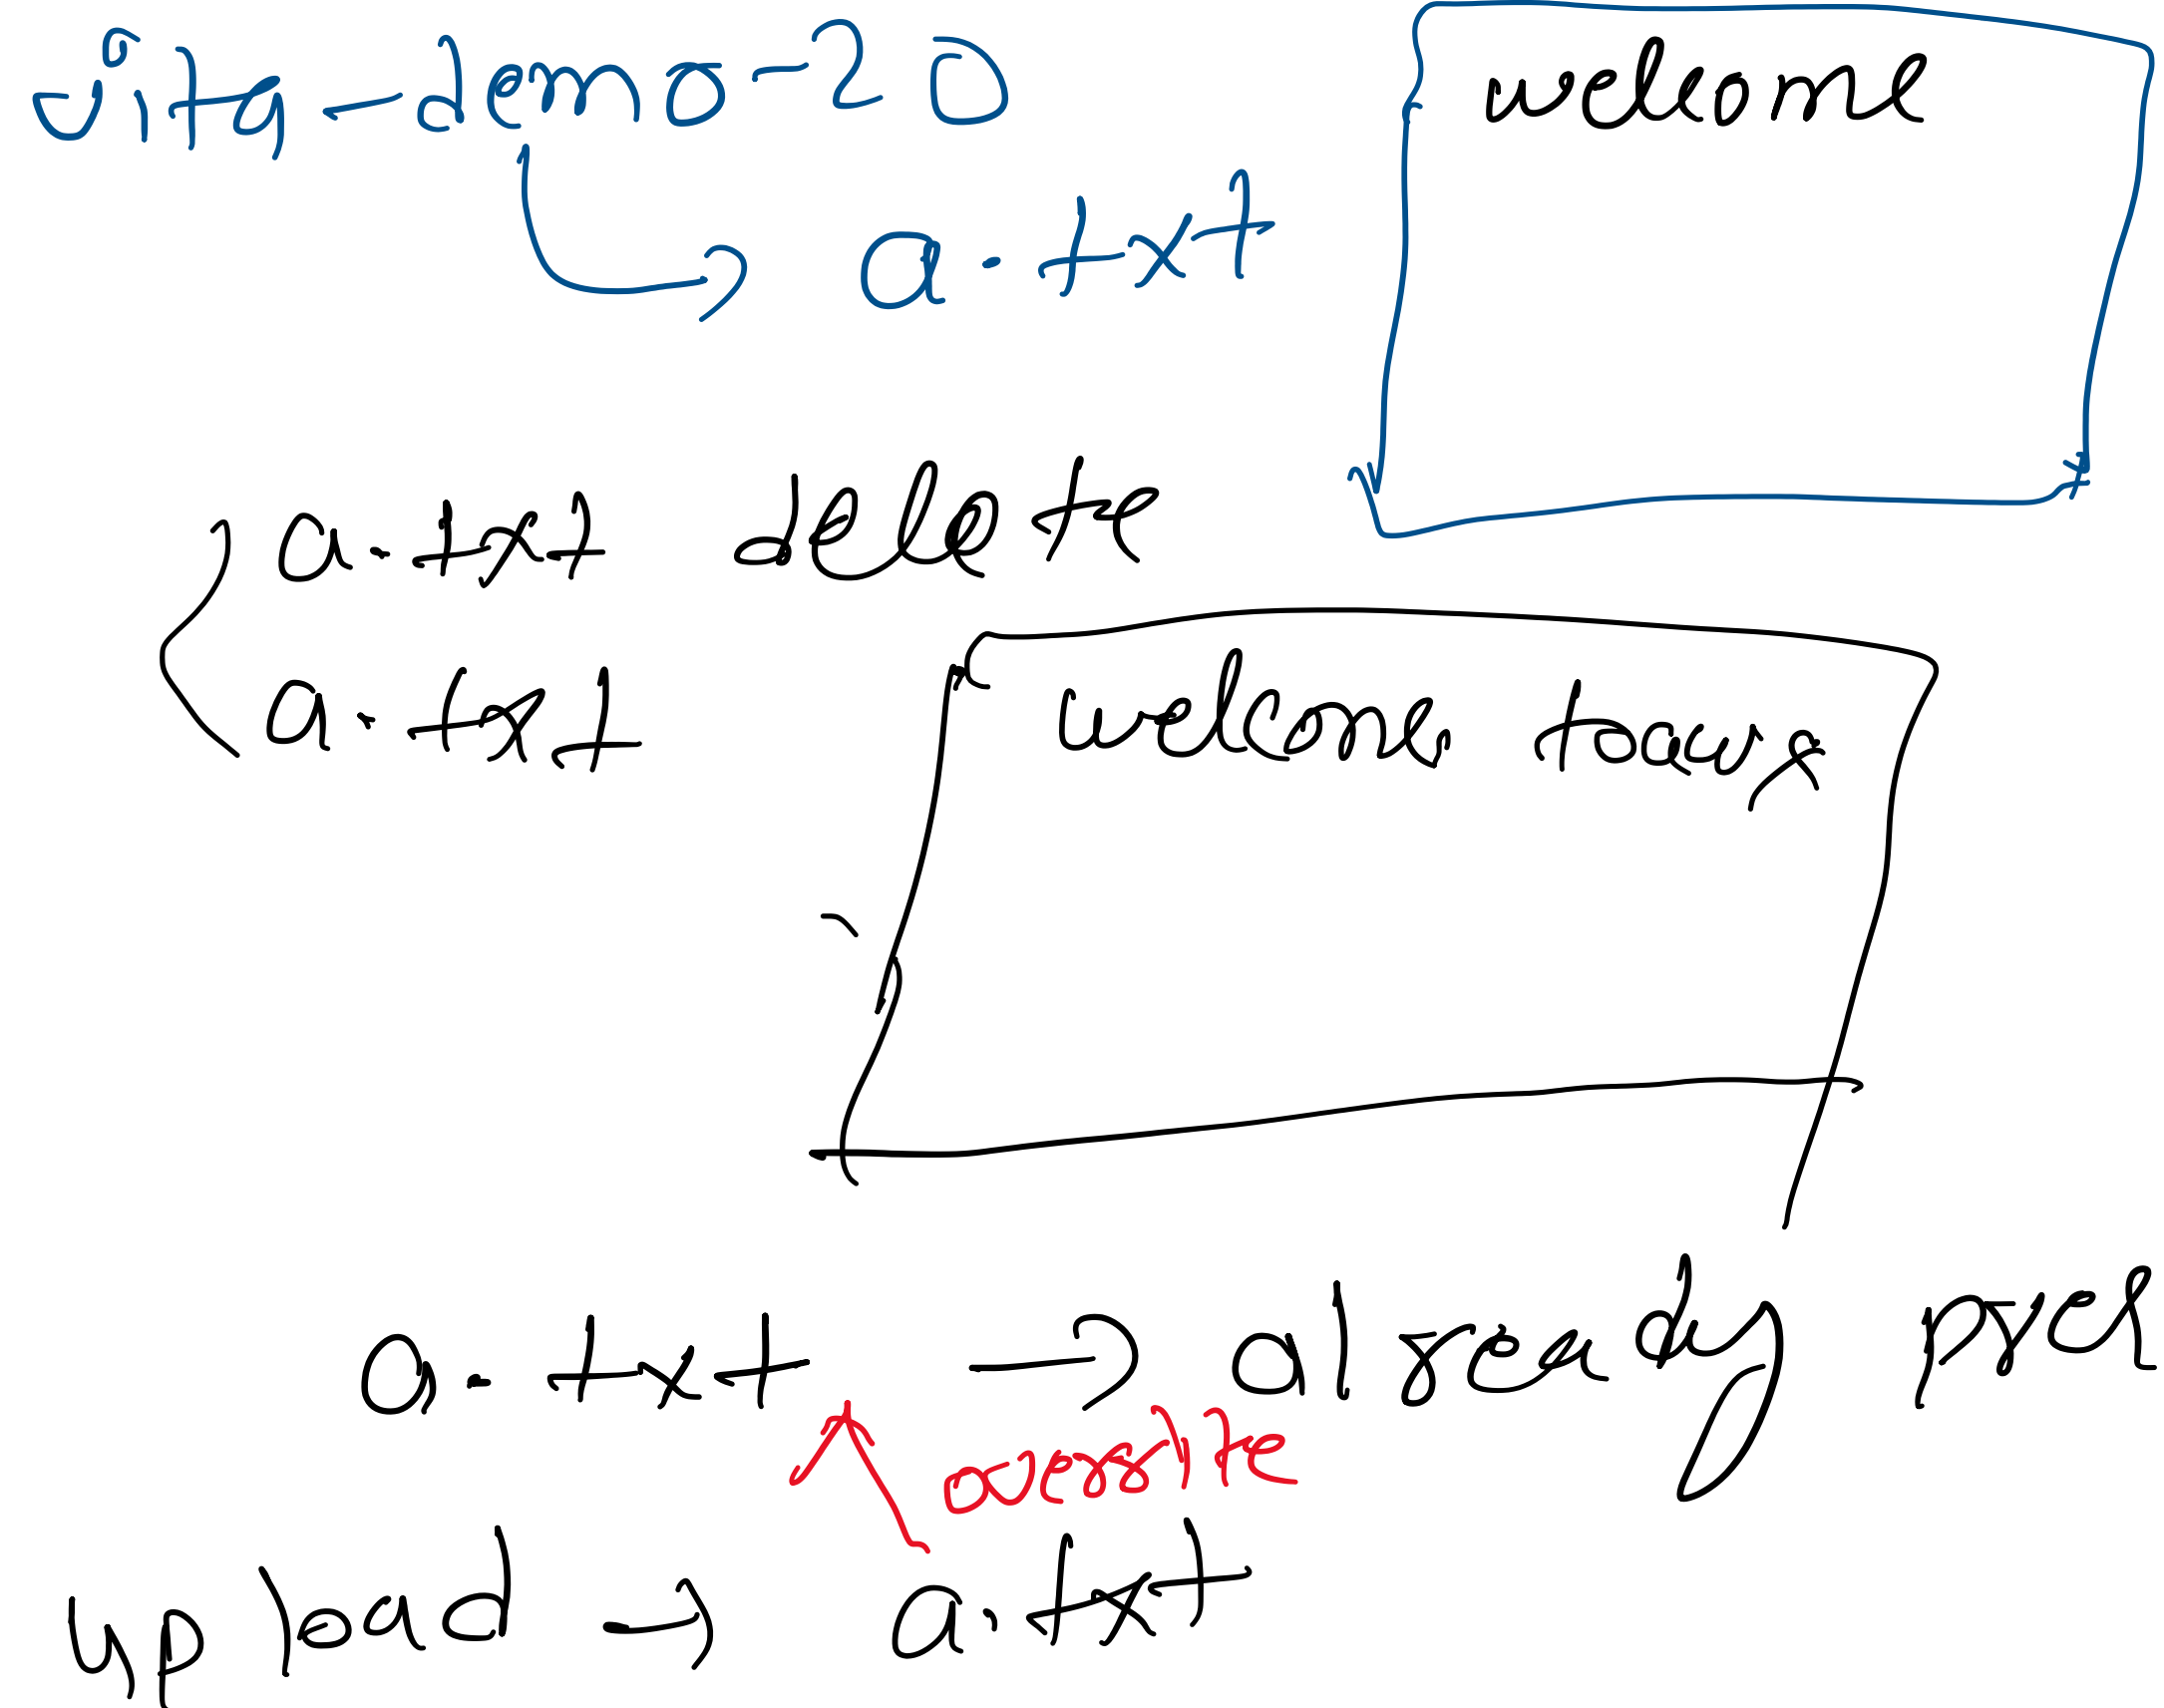 vita-demo-20
welcome
a.txt
a.txt delete
a.txt welcome, to aws
a.txt → already pres
overwrite
upload → a.txt